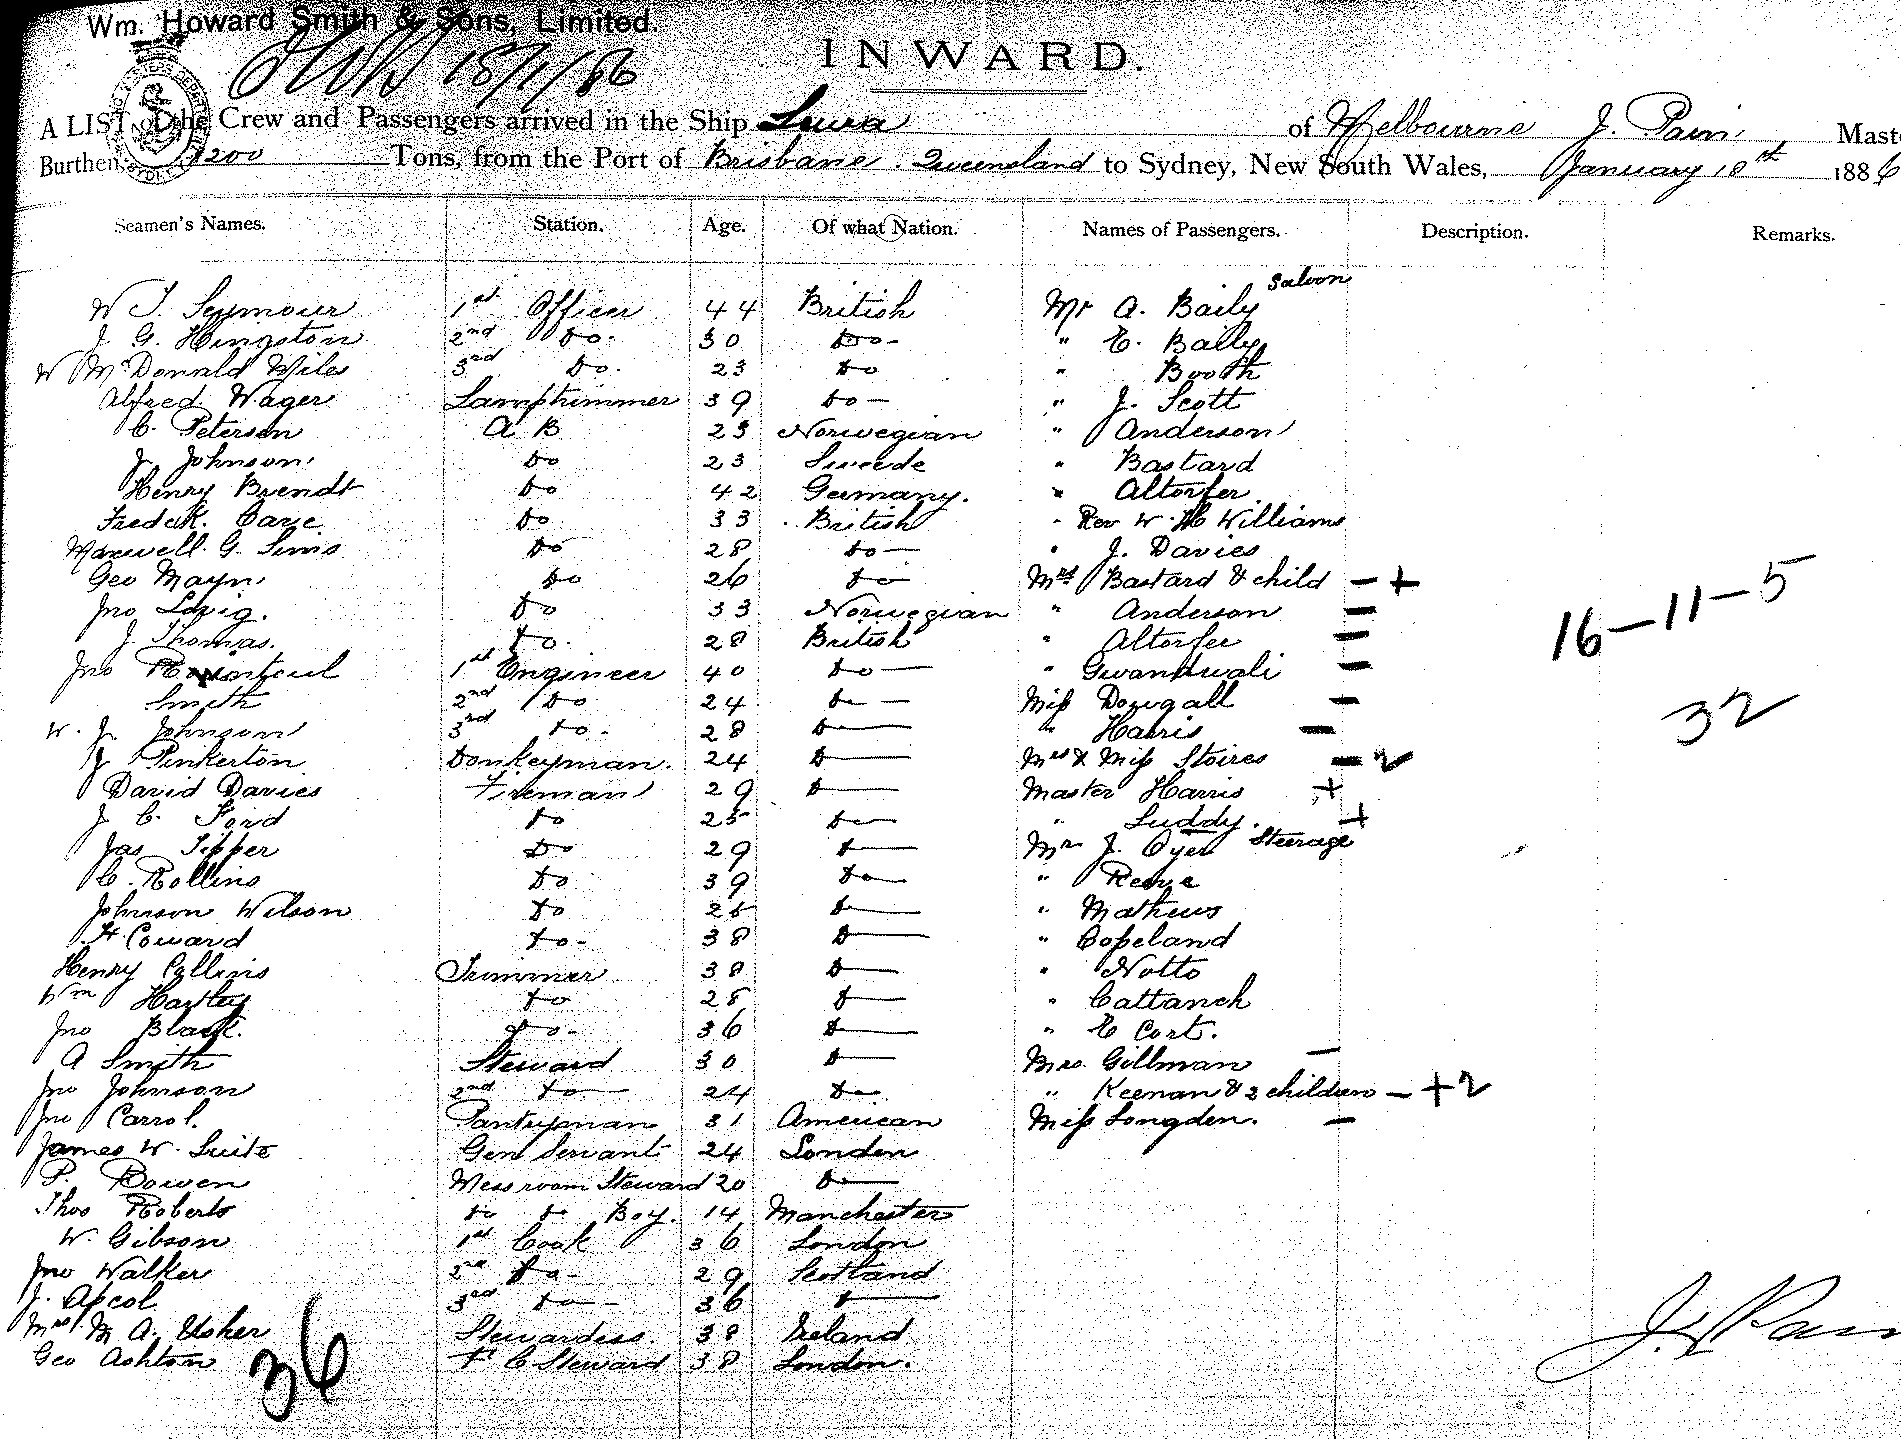 Wm. Howard Smith & Sons, Limited.
18/1/86
INWARD.
A LIST of the Crew and Passengers arrived in the Ship Leura of Melbourne J. Pain Mast
Burthen 1200 Tons, from the Port of Brisbane Queensland to Sydney, New South Wales, January 18th 1886
Seamen's Names. Station. Age. Of what Nation. Names of Passengers. Description. Remarks.
Saloon
W T. Seymour 1st Officer 44 British Mr A. Baily
J. G. Hingston 2nd Do. 30 Do - " E. Bailly
W McDonald Wiles 3rd Do. 23 Do " Booth
Alfred Wager Lamptrimmer 39 Do - " J. Scott
C. Petersen A B 23 Norwegian " Anderson
J. Johnson Do 23 Sweede " Bastard
Henry Brendt Do 42 Germany. " Altorfer
Fredck. Carie Do 33 British " Rev W. H Williams
Maxwell. G. Sims Do 28 Do - " J. Davies
Geo Mayn Do 26 Do - Mrs Bastard & child - +
Jno Do 33 Norwegian " Anderson -
16-11-5
J Thomas. Do. 28 British " Altorfer -
Jno 1st Engineer 40 Do - " -
Smith 2nd Do 24 Do - Miss Dougall -
32
W. J. Johnson 3rd Do. 28 D - " Harris -
J Pinkerton Donkeyman. 24 D - Mrs & Miss Stoires - 2
David Davies Fireman 29 D - Master Harris +
J C. Ford Do 25 Do " Luddy. +
Jas Tipper Do 29 D - Mr J. Oyer Steerage
C. Rollins Do 39 Do - " Reeve
Johnson Wilson Do 25 D - " Mathews
H. Coward Do - 38 D - " Copeland
Henry Collins Trimmer 38 D - " Notto
Wm Hartley Do 28 D - " Cattanch
Jno Black. Do - 36 D - " E Cort.
A Smith Steward 30 D - Mrs. Gillman -
Jno Johnson 2nd Do 24 Do " Keenan & 2 children - + 2
Jno Carrol. Pantryman 31 American Miss Longden. -
James W. Suite Gen Servant 24 London
P. Bowen Mess room Steward 20 D -
Thos Roberts Do Do Boy. 14 Manchester
W. Gibson 1st Cook 36 London
Jno Walker 2nd Do - 29 Scotland
J. Apcol 3rd Do - 36 D -
Mrs M A. Usher Stewardess. 38 Ireland
Geo Ashton F C Steward 38 London.
36
J. Pain